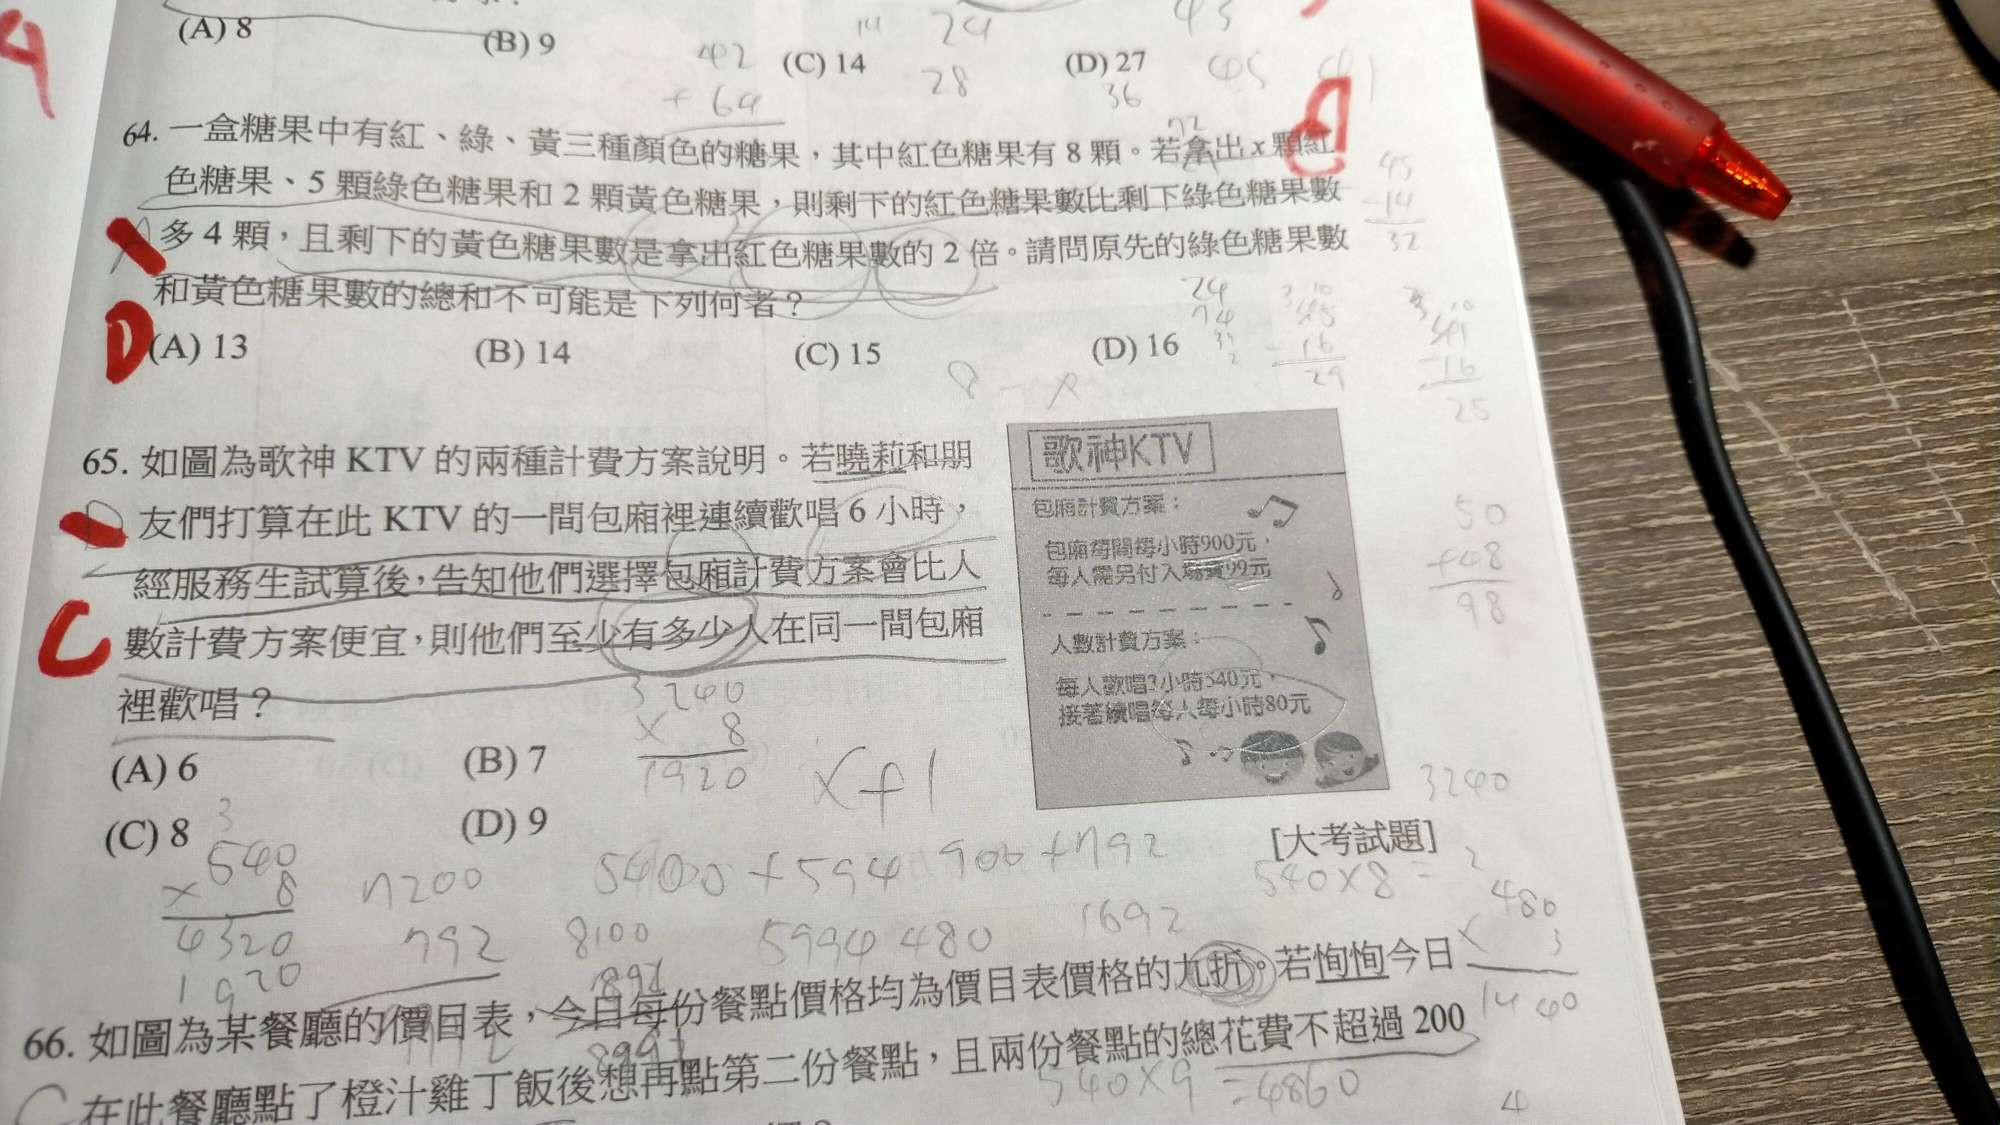 (A) 8 (B) 9 (C) 14 (D) 27
42
+ 69
14 29
28
43
36
45 41
64. 一盒糖果中有紅、綠、黃三種顏色的糖果，其中紅色糖果有 8 顆。若拿出 x 顆紅
色糖果、5 顆綠色糖果和 2 顆黃色糖果，則剩下的紅色糖果數比剩下綠色糖果數
多 4 顆，且剩下的黃色糖果數是拿出紅色糖果數的 2 倍。請問原先的綠色糖果數
和黃色糖果數的總和不可能是下列何者？
D
(A) 13 (B) 14 (C) 15 (D) 16
8 - x
45
-14
32
16
29
-16
25
65. 如圖為歌神 KTV 的兩種計費方案說明。若曉莉和朋
友們打算在此 KTV 的一間包廂裡連續歡唱 6 小時，
經服務生試算後，告知他們選擇包廂計費方案會比人
數計費方案便宜，則他們至少有多少人在同一間包廂
裡歡唱？
C
(A) 6 (B) 7
(C) 8 (D) 9
歌神KTV
包廂計費方案：
包廂每間每小時900元，
每人需另付入場費99元
人數計費方案：
每人歡唱3小時540元，
接著續唱每人每小時80元
[大考試題]
50
+48
98
3240
x 8
1920
x+1
3
540
x 8
4320
1920
7200
792
8100
5400+594
5994 480
900+792
1692
3240
540x8=
480
x 3
1440
66. 如圖為某餐廳的價目表，今日每份餐點價格均為價目表價格的九折。若恂恂今日
在此餐廳點了橙汁雞丁飯後想再點第二份餐點，且兩份餐點的總花費不超過 200
540x9=4860
4